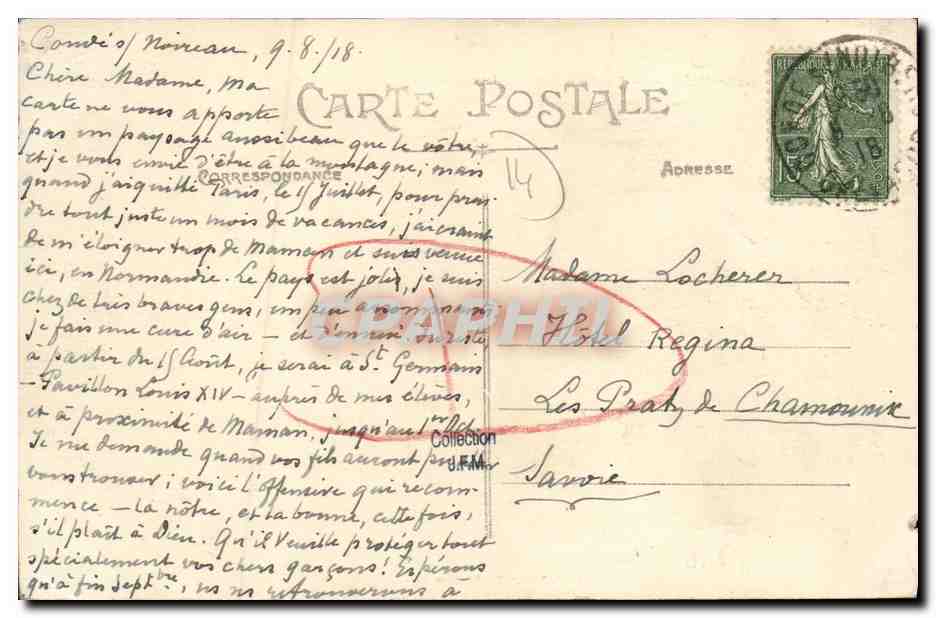 Condé s/ Noireau, 9.8./18.
Chère Madame, ma
carte ne vous apporte
pas un paysage aussi beau que le vôtre,
et je vous envie d'être à la montagne; mais
quand j'ai quitté Paris, le 15 Juillet, pour pren-
dre tout juste un mois de vacances, j'ai craint
de m'éloigner trop de Maman et suis venue
ici, en Normandie. Le pays est joli, je suis
chez de très braves gens, un peu assommants
je fais une cure d'air – et d'ennui. Ensuite
à partir du 15 Août, je serai à St. Germain
– Pavillon Louis XIV – auprès de mes élèves,
et à proximité de Maman, jusqu'au 1er Oct.
Je me demande quand vos fils auront pu aller
vous trouver; voici l'offensive qui recom-
mence – la nôtre, et la bonne, cette fois,
s'il plaît à Dieu. Qu'il veuille protéger tout
spécialement vos chers garçons! Espérons
qu'à fin Septbre, ns ns retrouverons à
CARTE POSTALE
CORRESPONDANCE
ADRESSE
14
RÉPUBLIQUE FRANÇAISE
Madame Locherer
Hôtel Regina
Les Praz de Chamounix
Savoie
CPAPHIL
Collection
J.F.M.